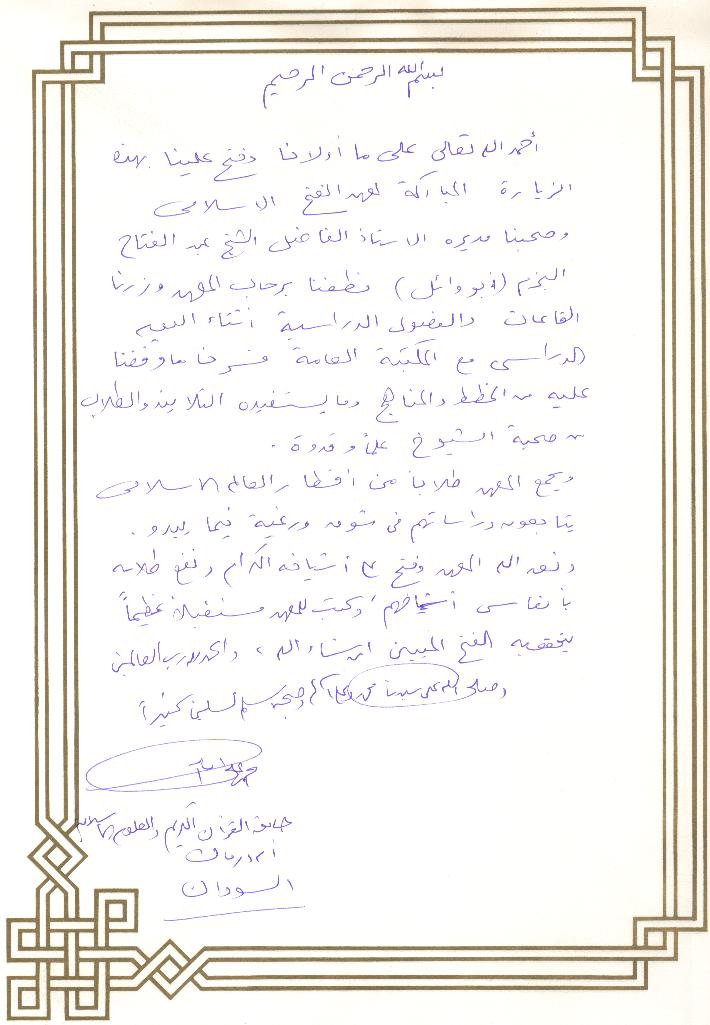 بسم الله الرحمن الرحيم
أحمد الله تعالى على ما أولانا وفتح علينا بهذه
الزيارة المباركة لمعهد الفتح الاسلامي
وصحبنا مديره الاستاذ الفاضل الشيخ عبد الفتاح
البزم (أبو وائل) فطفنا برحاب المعهد وزرنا
القاعات والفصول الدراسية أثناء اليوم
الدراسي مع المكتبة العامة فسرنا ما وقفنا
عليه من الخطط والمناهج وما يستفيده التلاميذ والطلاب
من صحبة الشيوخ علماً وقدوة .
ويجمع المعهد طلاباً من أقطار العالم الاسلامي
يتابعون دراساتهم في شوق ورغبة فيما يبدو .
ونفع الله المعهد وفتح على أشياخه الكرام ونفع طلابه
بأنفاس أشياخهم وكتب للمعهد مستقبلاً عظيماً
يتحقق به الفتح المبين ان شاء الله ، والحمد لله رب العالمين
وصلى الله على سيدنا محمد وعلى آله وصحبه وسلم تسليما كثيراً
جامعة القرآن الكريم والعلوم الاسلامية
أم درمان
السودان